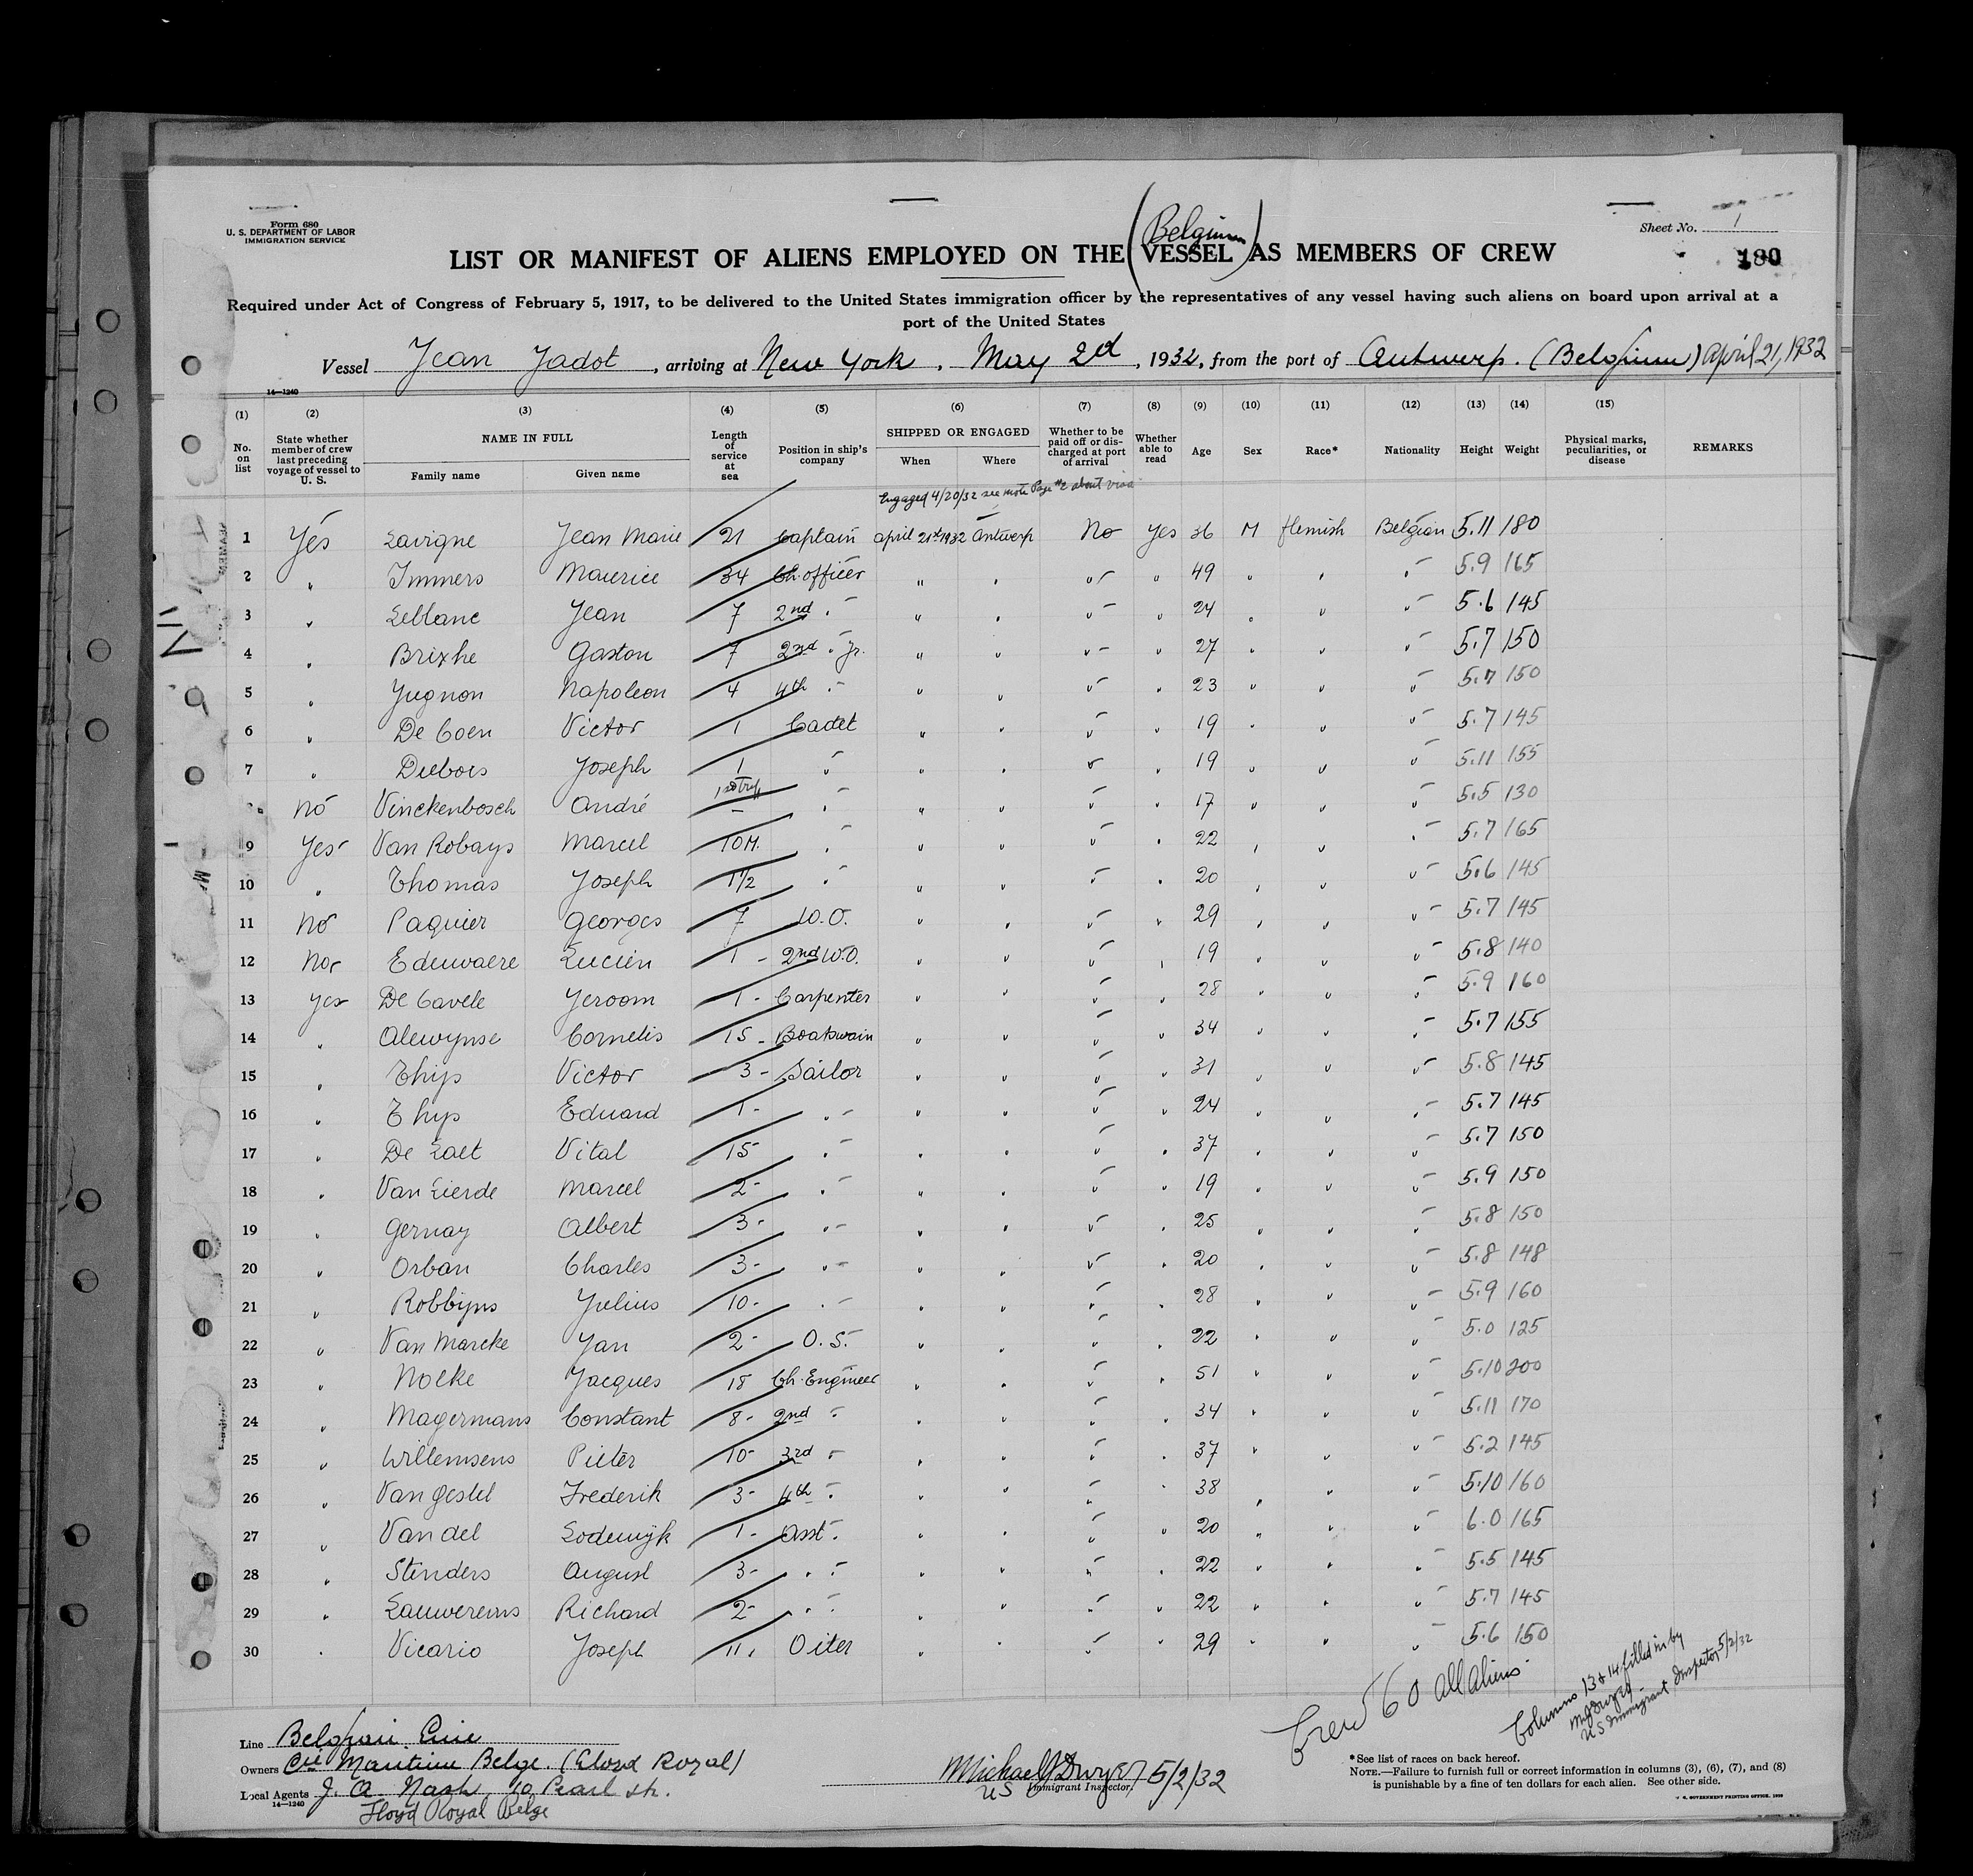 Form 680
U. S. DEPARTMENT OF LABOR
IMMIGRATION SERVICE
Sheet No. 1
180
(Belgium)
LIST OR MANIFEST OF ALIENS EMPLOYED ON THE VESSEL AS MEMBERS OF CREW
Required under Act of Congress of February 5, 1917, to be delivered to the United States immigration officer by the representatives of any vessel having such aliens on board upon arrival at a
port of the United States
Vessel Jean Jadot, arriving at New York, May 2d, 1932, from the port of Antwerp. (Belgium) April 21, 1932
14—1240
(1) (2) (3) (4) (5) (6) (7) (8) (9) (10) (11) (12) (13) (14) (15)
No. on list State whether member of crew last preceding voyage of vessel to U. S. NAME IN FULL Family name Given name Length of service at sea Position in ship's company SHIPPED OR ENGAGED When Where Whether to be paid off or discharged at port of arrival Whether able to read Age Sex Race* Nationality Height Weight Physical marks, peculiarities, or disease REMARKS
Engaged 4/20/32 see note Page #2 about visa
1 Yes Lavigne Jean Marie 21 Captain april 21st 1932 Antwerp No Yes 36 M flemish Belgian 5.11 180
2 " Immers Maurice 34 Ch. officer " " " " 49 " " " 5.9 165
3 " Leblanc Jean 7 2nd " " " " " 24 " " " 5.6 145
4 " Brixhe Gaston 7 2nd " Jr. " " " " 27 " " " 5.7 150
5 " Jugnon Napoleon 4 4th " " " " " 23 " " " 5.7 150
6 " De Coen Victor 1 Cadet " " " " 19 " " " 5.7 145
7 " Dubois Joseph 1 " " " " " 19 " " " 5.11 155
no Vinckenbosch André 1st trip — " " " " " 17 " " " 5.5 130
9 Yes Van Robays Marcel 10 M. " " " " " 22 " " " 5.7 165
10 " Thomas Joseph 1 1/2 " " " " " 20 " " " 5.6 145
11 No Paquier Georges 7 W.O. " " " " 29 " " " 5.7 145
12 No Eduwaere Lucien 1 - 2nd W.O. " " " " 19 " " " 5.8 140
13 yes De Cavele Jeroom 1 - Carpenter " " " " 28 " " " 5.9 160
14 " Alewynse Cornelis 15 - Boatswain " " " " 34 " " " 5.7 155
15 " Thys Victor 3 - Sailor " " " " 31 " " " 5.8 145
16 " Thys Eduard 1 - " " " " " 24 " " " 5.7 145
17 " De Laet Vital 15 - " " " " " 37 " " " 5.7 150
18 " Van Lierde Marcel 2 - " " " " " 19 " " " 5.9 150
19 " Gernay Albert 3 - " " " " " 25 " " " 5.8 150
20 " Orban Charles 3 - " " " " " 20 " " " 5.8 148
21 " Robbyns Julius 10 - " " " " " 28 " " " 5.9 160
22 " Van Marcke Jan 2 - O.S. " " " " 22 " " " 5.0 125
23 " Nolke Jacques 18 Ch. Engineer " " " " 51 " " " 5.10 200
24 " Magermans Constant 8 - 2nd " " " " " 34 " " " 5.11 170
25 " Willemsens Pieter 10 - 3rd " " " " " 37 " " " 5.2 145
26 " Van Gestel Frederik 3 - 4th " " " " " 38 " " " 5.10 160
27 " Van del Lodewyk 1 - Asst. " " " " " 20 " " " 6.0 165
28 " Stenders August 3 - " " " " " " 22 " " " 5.5 145
29 " Lauwereins Richard 2 - " " " " " " 22 " " " 5.7 145
30 " Vicario Joseph 11 " Oiler " " " " 29 " " " 5.6 150
Crew 60 all aliens.
Columns 13 & 14 filled in by
US Immigrant Inspector 5/2/32
Line Belgian Line
Owners Cie Maritime Belge. (Lloyd Royal)
Local Agents J. A. Nash 10 Pearl St.
14—1240
Lloyd Royal Belge
Michael J Dwyer 5/2/32
US Immigrant Inspector.
*See list of races on back hereof.
NOTE.—Failure to furnish full or correct information in columns (3), (6), (7), and (8)
is punishable by a fine of ten dollars for each alien. See other side.